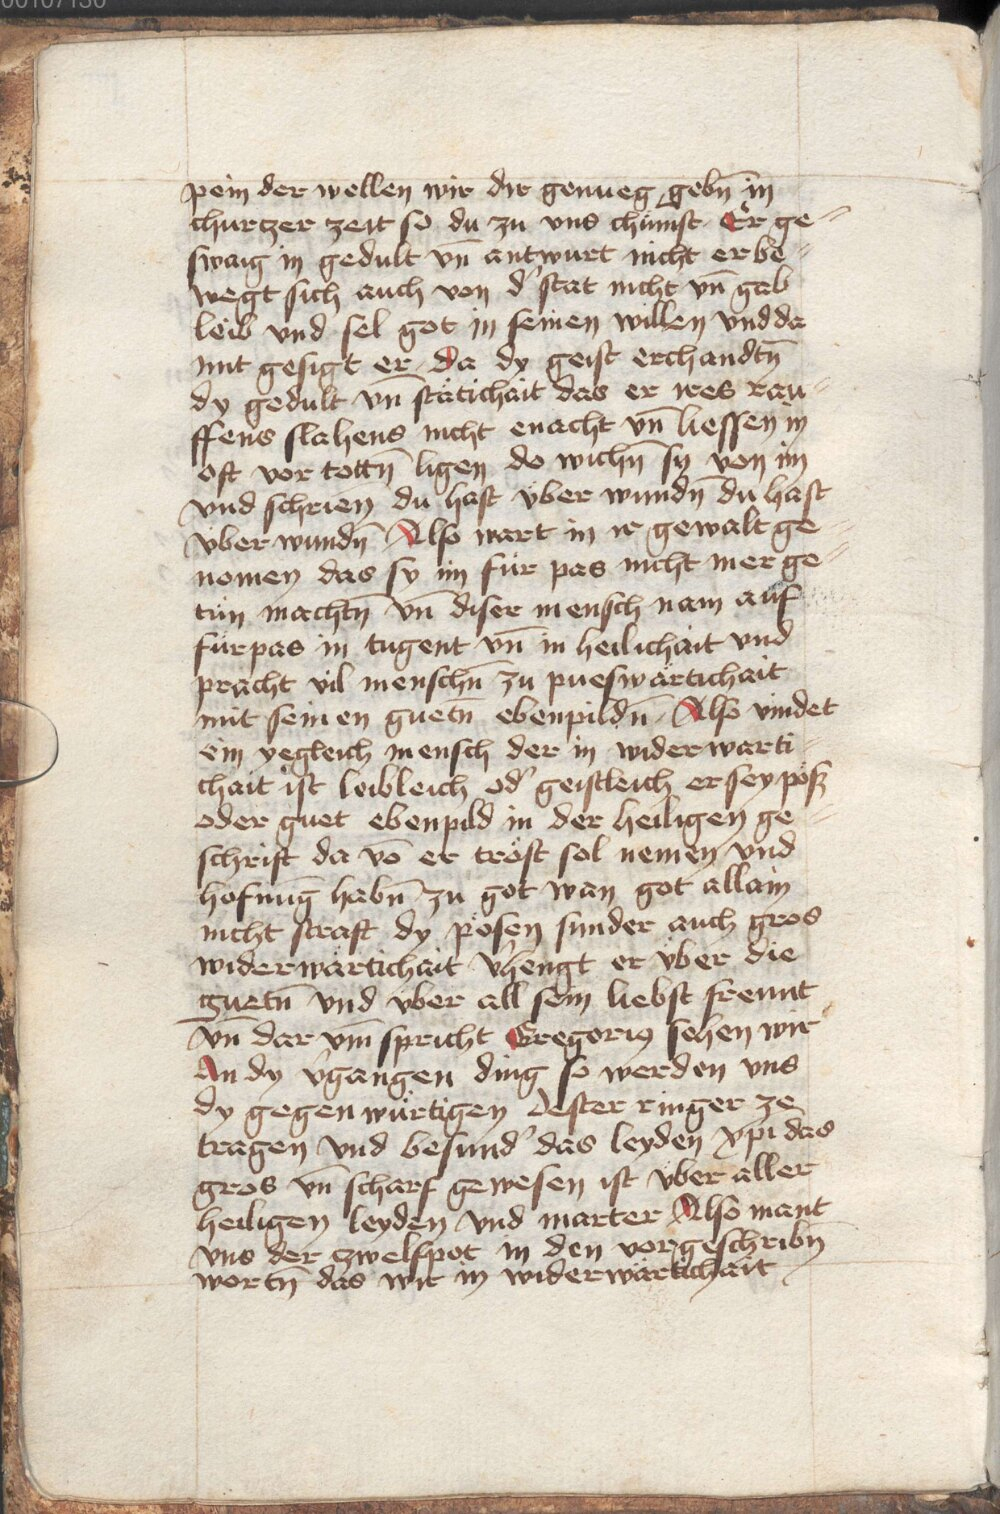 00107130
pein der wellen wir dir genueg gebn̄ in
churczer zeit so du zu uns chumst Er ge=
swaig in gedult vn̄ antwurt nicht er be=
wegt sich auch von d' stat nicht vn̄ gab
leib vnd sel got in seinen willen vnd da
mit gesigt er Da dy geist erchandtn̄
dy gedult vn̄ stätichait das er ires rau=
ffens slahens nicht enacht vn̄ liessen in
oft vor tottn̄ ligen do wichn̄ sy von im
vnd schrien du hast vber wundn̄ du hast
vber wundn̄ Also wart in ir gewalt ge=
nomen das sy im für pas nicht mer ge=
tün machtn̄ vn̄ diser mensch nam auf
fürpas in tugent vn̄ in heilichait vnd
pracht vil menschn̄ zu pueswärtichait
mit seinen guetn̄ ebenpildn̄ Also vindet
ein yegleich mensch der in widerwarti=
chait ist leibleich od' geistleich er sey pöß
oder guet ebenpild in der heiligen ge=
schrift da vō er tröst sol nemen vnd
hofnūg habn̄ zu got wan got allain
nicht straft dy pösen sunder auch gros
widerwärtichait v'hengt er vber die
guetn̄ vnd vber all sein liebst freunt
vn̄ dar vm̄ spricht Gregorius sehen wir
An dy v'gangen ding so werden vns
dy gegenwürtigen dester ringer ze
tragen vnd besund' das leyden xp̄i das
gros vn̄ scharf gewesen ist vber aller
heiligen leyden vnd marter Also mant
vns der zwelfpot in den vorgeschribn̄
wortn̄ das wir in widerwärtichait